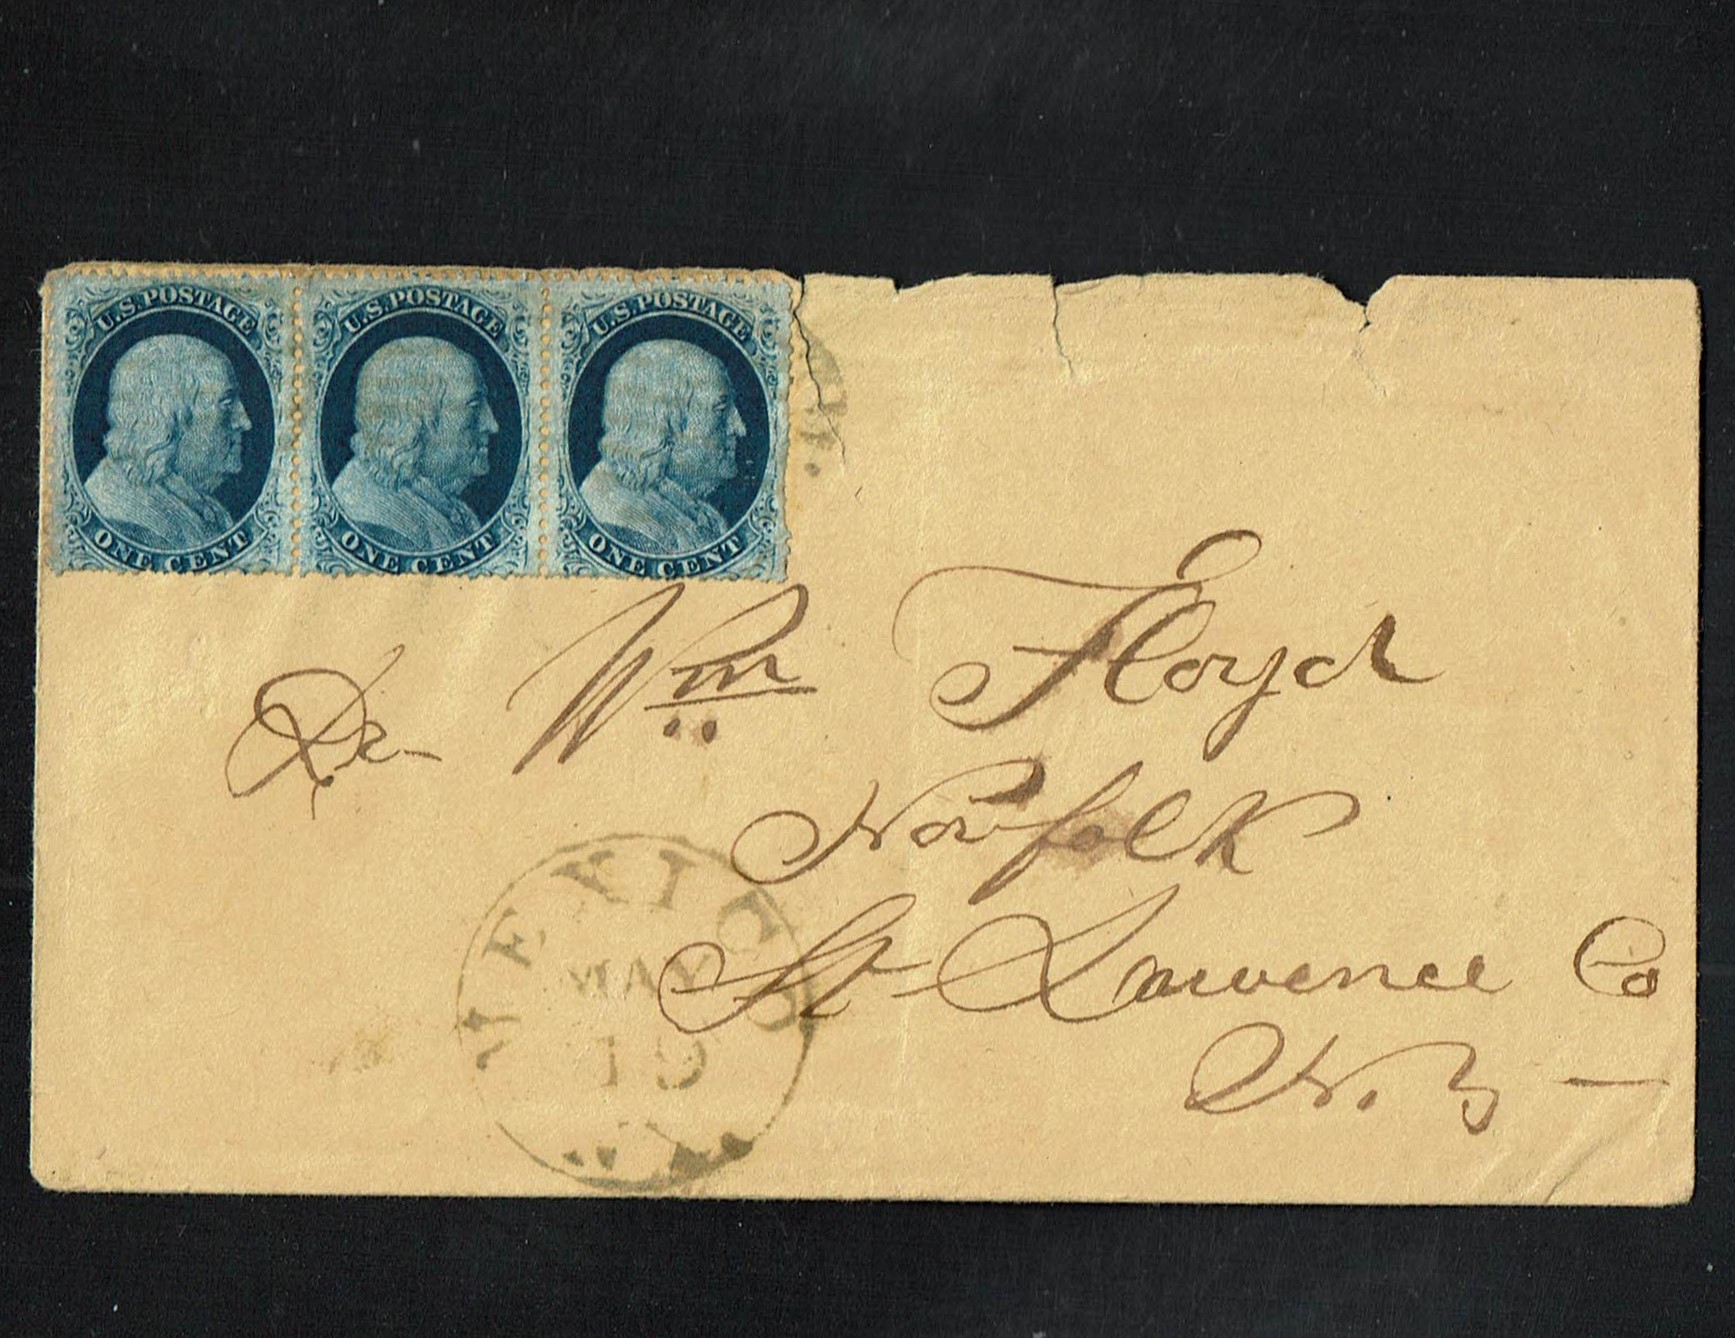 U.S. POSTAGE
ONE CENT
U.S. POSTAGE
ONE CENT
U.S. POSTAGE
ONE CENT
Dr Wm Floyd
Norfolk
St Lawrence Co
N. Y
MEXICO
MAY
19
N.Y.